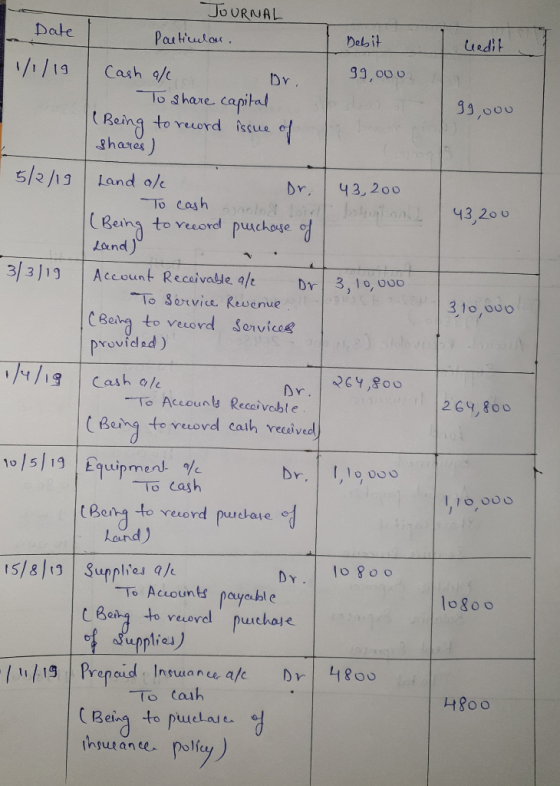 JOURNAL
Date Particular. Debit Credit
1/1/19 Cash a/c Dr. 99,000
To share capital 99,000
(Being to record issue of
shares)
5/2/19 Land a/c Dr. 43,200
To cash 43,200
(Being to record purchase of
Land)
3/3/19 Account Receivable a/c Dr 3,10,000
To Service Revenue. 3,10,000
(Being to record Services
provided)
1/4/19 Cash a/c Dr. 264,800
To Accounts Receivable. 264,800
(Being to record cash received)
10/5/19 Equipment a/c Dr. 1,10,000
To cash 1,10,000
(Being to record purchase of
Land)
15/8/19 Supplies a/c Dr. 10800
To Accounts payable 10800
(Being to record purchase
of Supplies)
/11/19 Prepaid Insurance a/c Dr 4800
To cash 4800
(Being to purchase of
insurance policy)